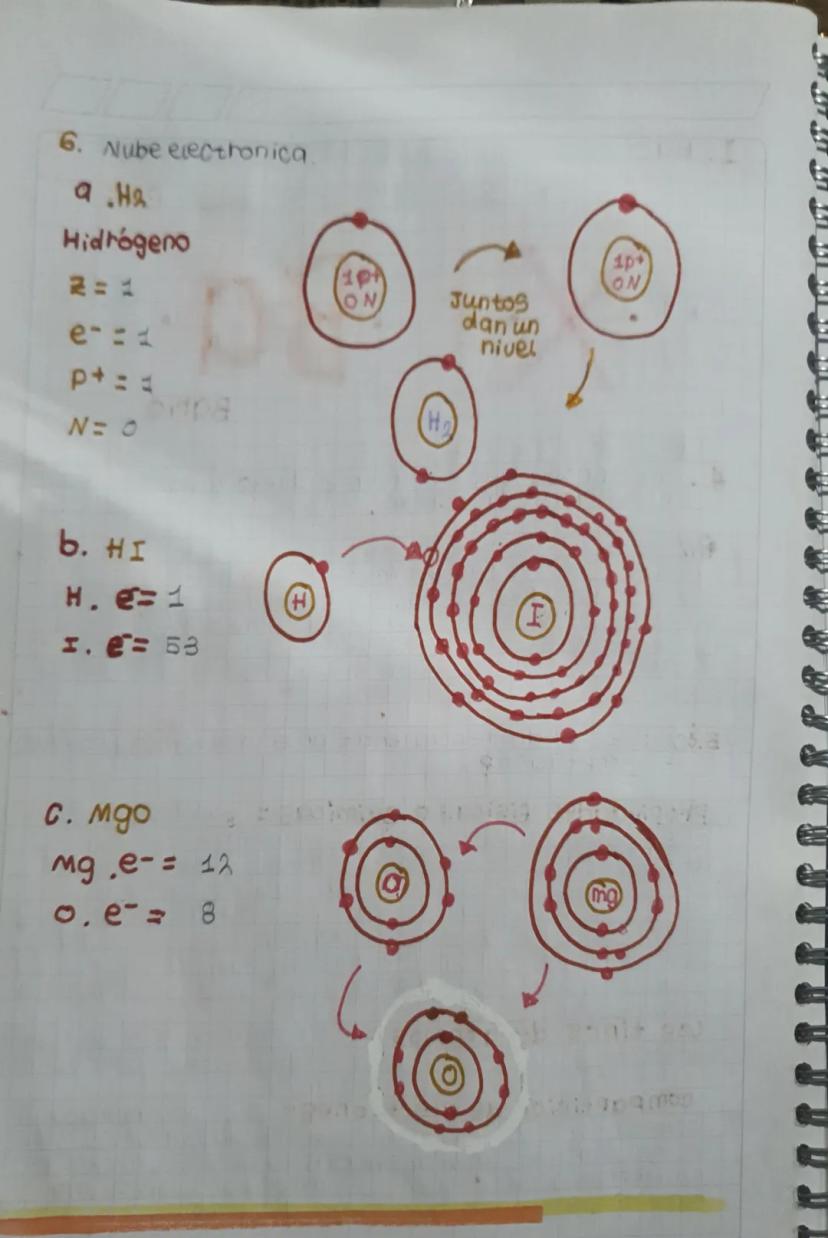 6. Nube electronica.
a. H2
Hidrógeno
Z = 1
e- = 1
p+ = 1
N = 0
1p+
0 N
Juntos
dan un
nivel
1p+
0 N
H2
b. HI
H. e- = 1
I. e- = 53
H
I
c. MgO
Mg. e- = 12
O. e- = 8
O
mg
O